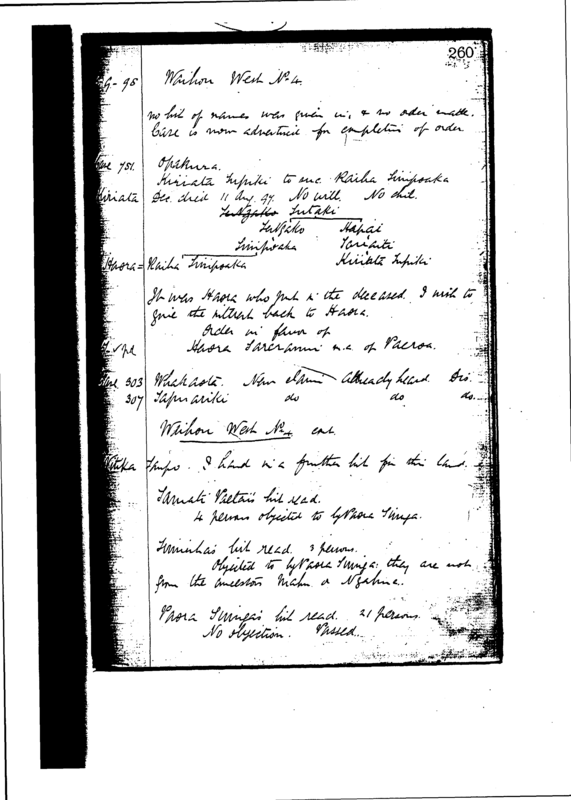 260
G-95 Waihou West No 4.
no list of names was given in, & no order made.
Case is now advertised for completion of order
Case 751. Opakura.
Kiriata Tupiki to suc. Raiha Tiniporaka
Kiriata Dec. died 11 Aug. 97. No will. No chil.
Te Ngako Tutaki
Te Ngako Hapai
Tiniporaka Tariaiti
Haora = Raiha Tiniporaka Kiriata Tupiki
It was Haora who put in the deceased. I wish to
give the interest back to Haora.
Order in favor of
Haora Tareranui m.a. of Paeroa.
Case 303 Whakaata. New claim Already heard Dis.
307 Tapuariki do do do.
Waihou West No 4 cont.
Tupo. I hand in a further list for this land.
Tamati Paetai's list read.
4 persons objected to by Paora Tiunga.
list read. 3 persons.
Objected to by Paora Tiunga; they are not
from the ancestors Mahu or Ngahua.
Paora Tiunga's list read. 21 persons.
No objection. Passed.